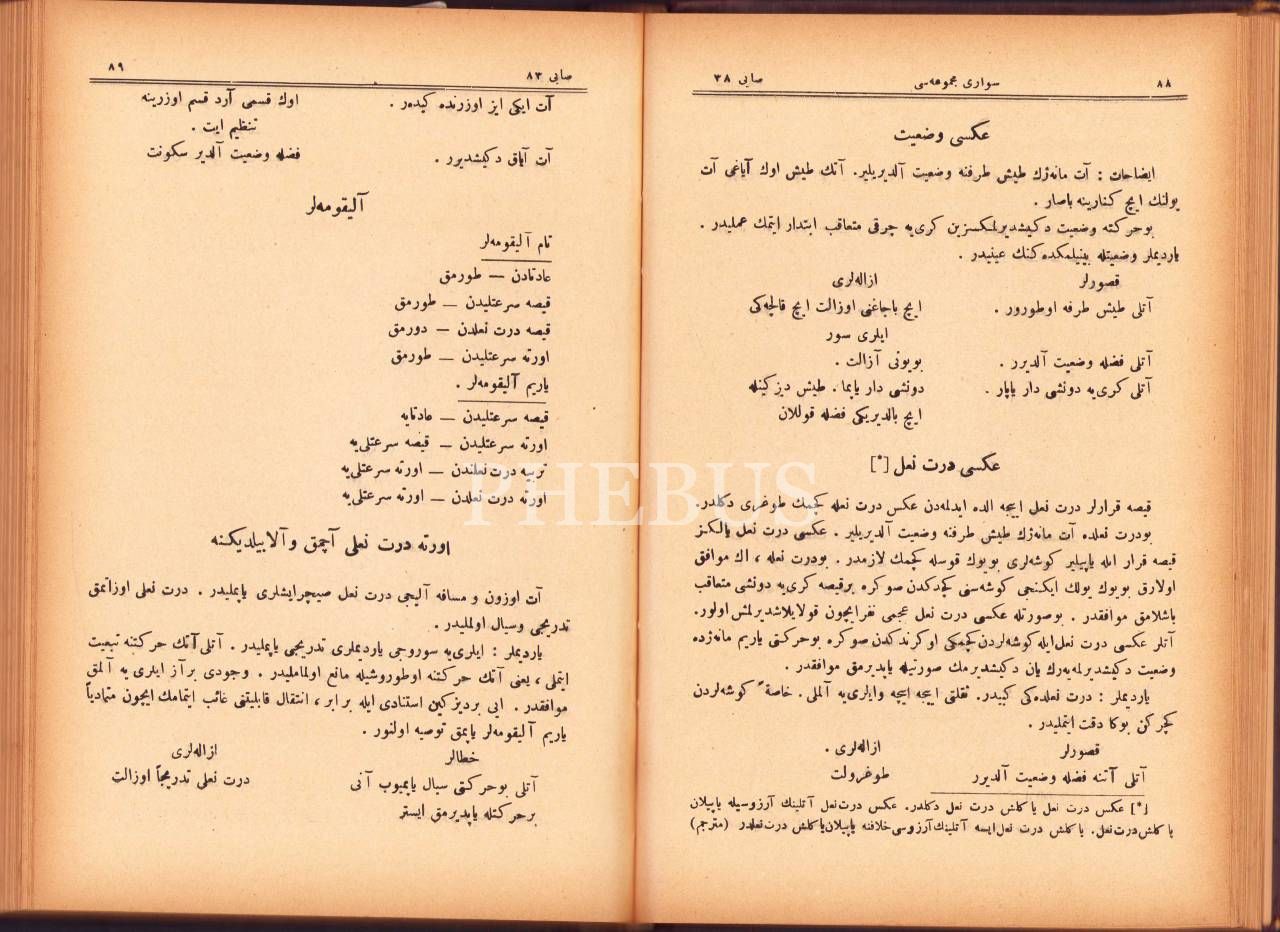 ٨٨
سواری مجموعه‌سی
صایی ٣٨
عکسی وضعیت
ایضاحات : آت مانه‌ژك طیش طرفنه وضعیت آلدیریلیر. آتك طیش اوك آیاغی آت
یولنك ایچ کنارینه باصار .
بوحرکته وضعیت دکیشدیرلمکسزین کری‌یه چرقی متعاقب ابتدار ایتمك عملیدر .
یاردیملر وضعیتله بینیلمکده‌کنك عینیدر .
قصورلر
ازاله‌لری
آتلی طیش طرفه اوطورور .
ایچ باجاغنی اوزالت ایچ قالچه‌کی
ایلری سور
آتلی فضله وضعیت آلدیرر .
بوبونی آزالت .
آتلی کری‌یه دونشی دار یاپار .
دونشی دار یاپما . طیش دیزکینله
ایچ بالدیریکی فضله قوللان
عکسی درت نعل [*]
قیصه قرارلر درت نعل اییجه الده ایدلمه‌دن عکس درت نعله کچمك طوغری دکلدر.
بودرت نعلده آت مانه‌ژك طیش طرفنه وضعیت آلدیریلیر . عکسی درت نعل یالکز
قیصه قرار امله یاپیلیر کوشه‌لری بویوك قوسله کچمك لازمدر . بودرت نعله ، اك موافق
اولارق بویوك یولك ایکنجی کوشه‌سنی کچدکدن صوکره برقیصه کری‌یه دونشی متعاقب
باشلامق موافقدر . بوصورتله عکسی درت نعل عجمی نفرایچون قولایلاشدیرلمش اولور.
آتلر عکسی درت نعل‌ایله کوشه‌لردن کچمکی اوکرندکدن صوکره بوحرکتی یاریم مانه‌ژده
وضعیت دکیشدیرلمه‌یه‌رك یان دکیشدیرمك صورتیله یاپدیرمق موافقدر .
یاردیملر : درت نعلده‌کی کبیدر. ثقلتی اییجه ایچه وایلری‌یه آلملی . خاصةً کوشه‌لردن
کچرکن بوکا دقت ایتملیدر .
قصورلر
ازاله‌لری .
آتلی آتنه فضله وضعیت آلدیرر
طوغرولت
[*] عکس درت نعل یاکلش درت نعل دکلدر. عکس درت‌نعل آتلینك آرزوسیله یاپیلان
یاکلش‌درت‌نعل. یاکلش درت نعل‌ایسه آتلینك‌آرزوسی‌خلافنه یاپیلان‌یاکلش درت‌نعلدر (مترجم)
صایی ٨٣
٨٩
آت ایکی ایز اوزرنده کیدەر .
اوك قسمی آرد قسم اوزرینه
تنظیم ایت .
آت آیاق دکیشدیرر .
فضله وضعیت آلدیر سکونت
آلیقومه‌لر
تام آلیقومه‌لر
عادتادن — طورمق
قیصه سرعتلیدن — طورمق
قیصه درت نعلدن — دورمق
اورته سرعتلیدن — طورمق
یاریم آلیقومه‌لر .
قیصه سرعتلیدن — عادتایه
اورته سرعتلیدن — قیصه سرعتلی‌یه
تربیه درت نعلندن — اورته سرعتلی‌یه
اورته درت نعلدن — اورته سرعتلی‌یه
PHEBUS
اورته درت نعلی آچمق وآلابیلدیکنه
آت اوزون و مسافه آلیجی درت نعل صیچرایشلری یاپملیدر . درت نعلی اوزاتمق
تدریجی وسیال اولملیدر .
یاردیملر : ایلری‌یه سوروجی یاردیملری تدریجی یاپملیدر . آتلی آتك حرکتنه تبعیت
ایتملی ، یعنی آتك حرکتنه اوطوروشیله مانع اولماملیدر . وجودی برآز ایلری یه آلمق
موافقدر . ایی بردیزکین استنادی ایله برابر ، انتقال قابلیتنی غائب ایتمامك ایچون متمادیاً
یاریم آلیقومه‌لر یاپمق توصیه اولنور .
خطالر
ازاله‌لری
آتلی بوحرکتی سیال یاپمیوب آنی
درت نعلی تدریجاً اوزالت
برحرکتله یاپدیرمق ایستر